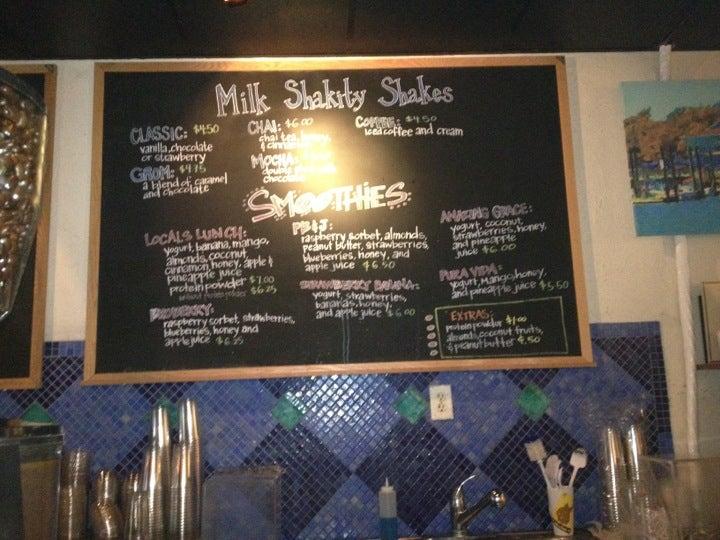 Milk Shakity Shakes
CLASSIC: $4.50
vanilla, chocolate
or strawberry
GROM: $4.75
a blend of caramel
and chocolate
CHAI: $6.00
chai tea, honey,
& cinnamon
MOCHA:
double
chocolate
COFFEE: $4.50
iced coffee and cream
SMOOTHIES
LOCALS LUNCH:
yogurt, banana, mango,
almonds, coconut,
cinnamon, honey, apple &
pineapple juice
protein powder $7.00
without protein powder $6.25
BIGBERRY:
raspberry sorbet, strawberries,
blueberries, honey and
apple juice $6.25
PB&J:
raspberry sorbet, almonds,
peanut butter, strawberries,
blueberries, honey, and
apple juice $6.50
STRAWBERRY BANANA:
yogurt, strawberries,
bananas, honey,
and apple juice $6.00
AMAZING GRACE:
yogurt, coconut,
strawberries, honey,
and pineapple
juice $6.00
PURA VIDA:
yogurt, mango, honey,
and pineapple juice $5.50
EXTRAS:
protein powder $1.00
almonds, coconut, fruits,
& peanut butter $.50